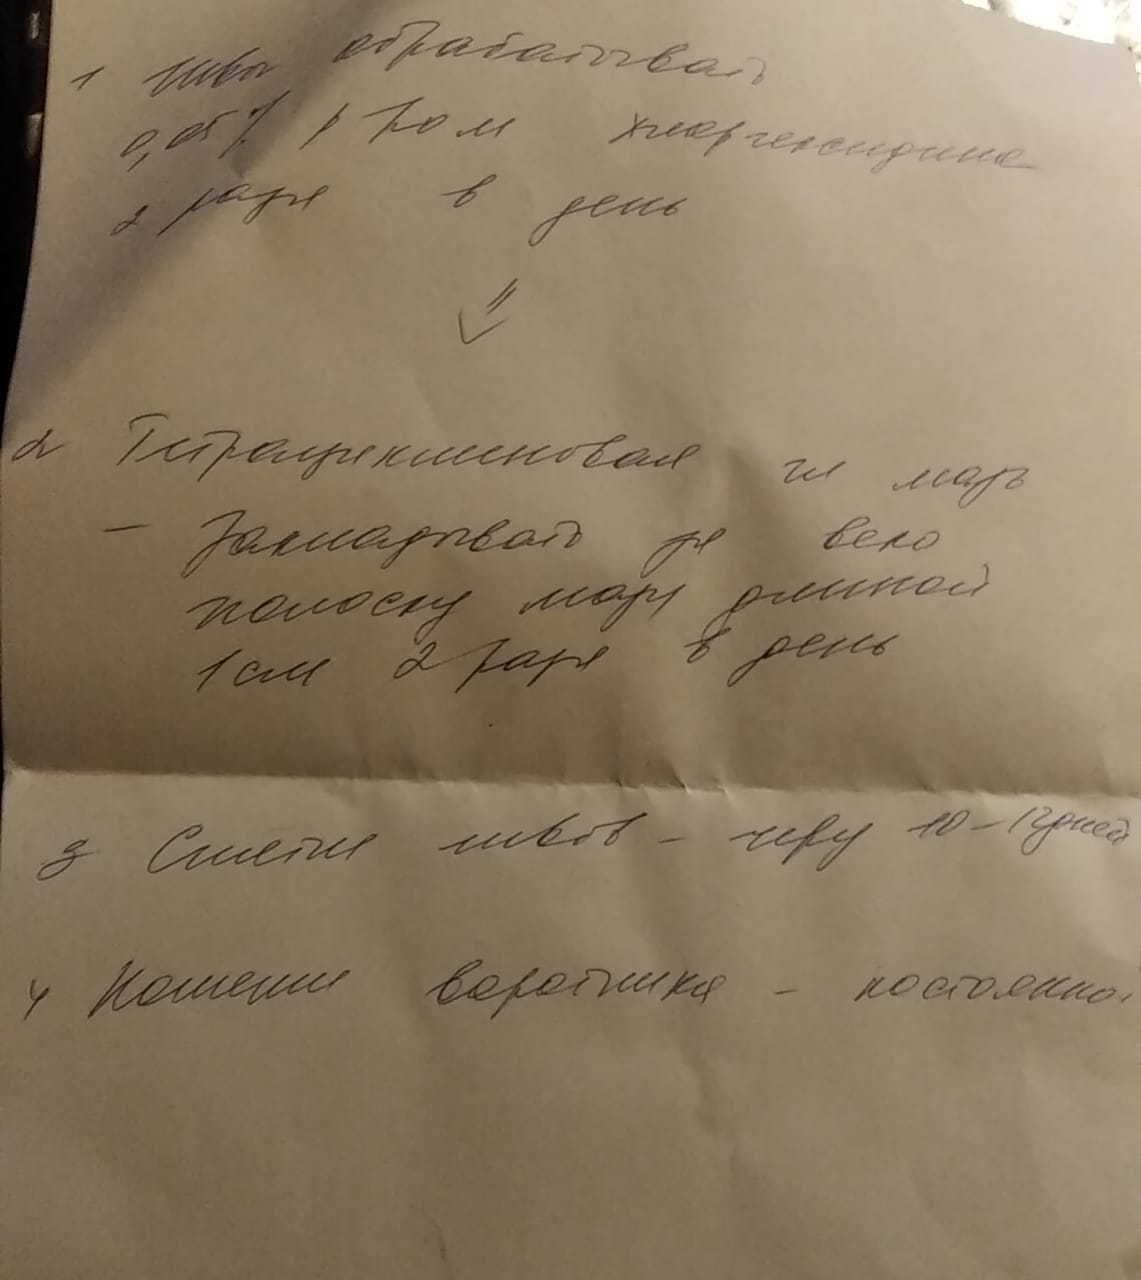 1 Швы обрабатывать
0,05% р-ром хлоргексидина
2 раза в день
2 Тетрациклиновая гл мазь
- Закладывать за веко
полоску мази длиной
1 см 2 раза в день
3 Снятие швов - через 10-12 дней
4 Ношение воротника - постоянно